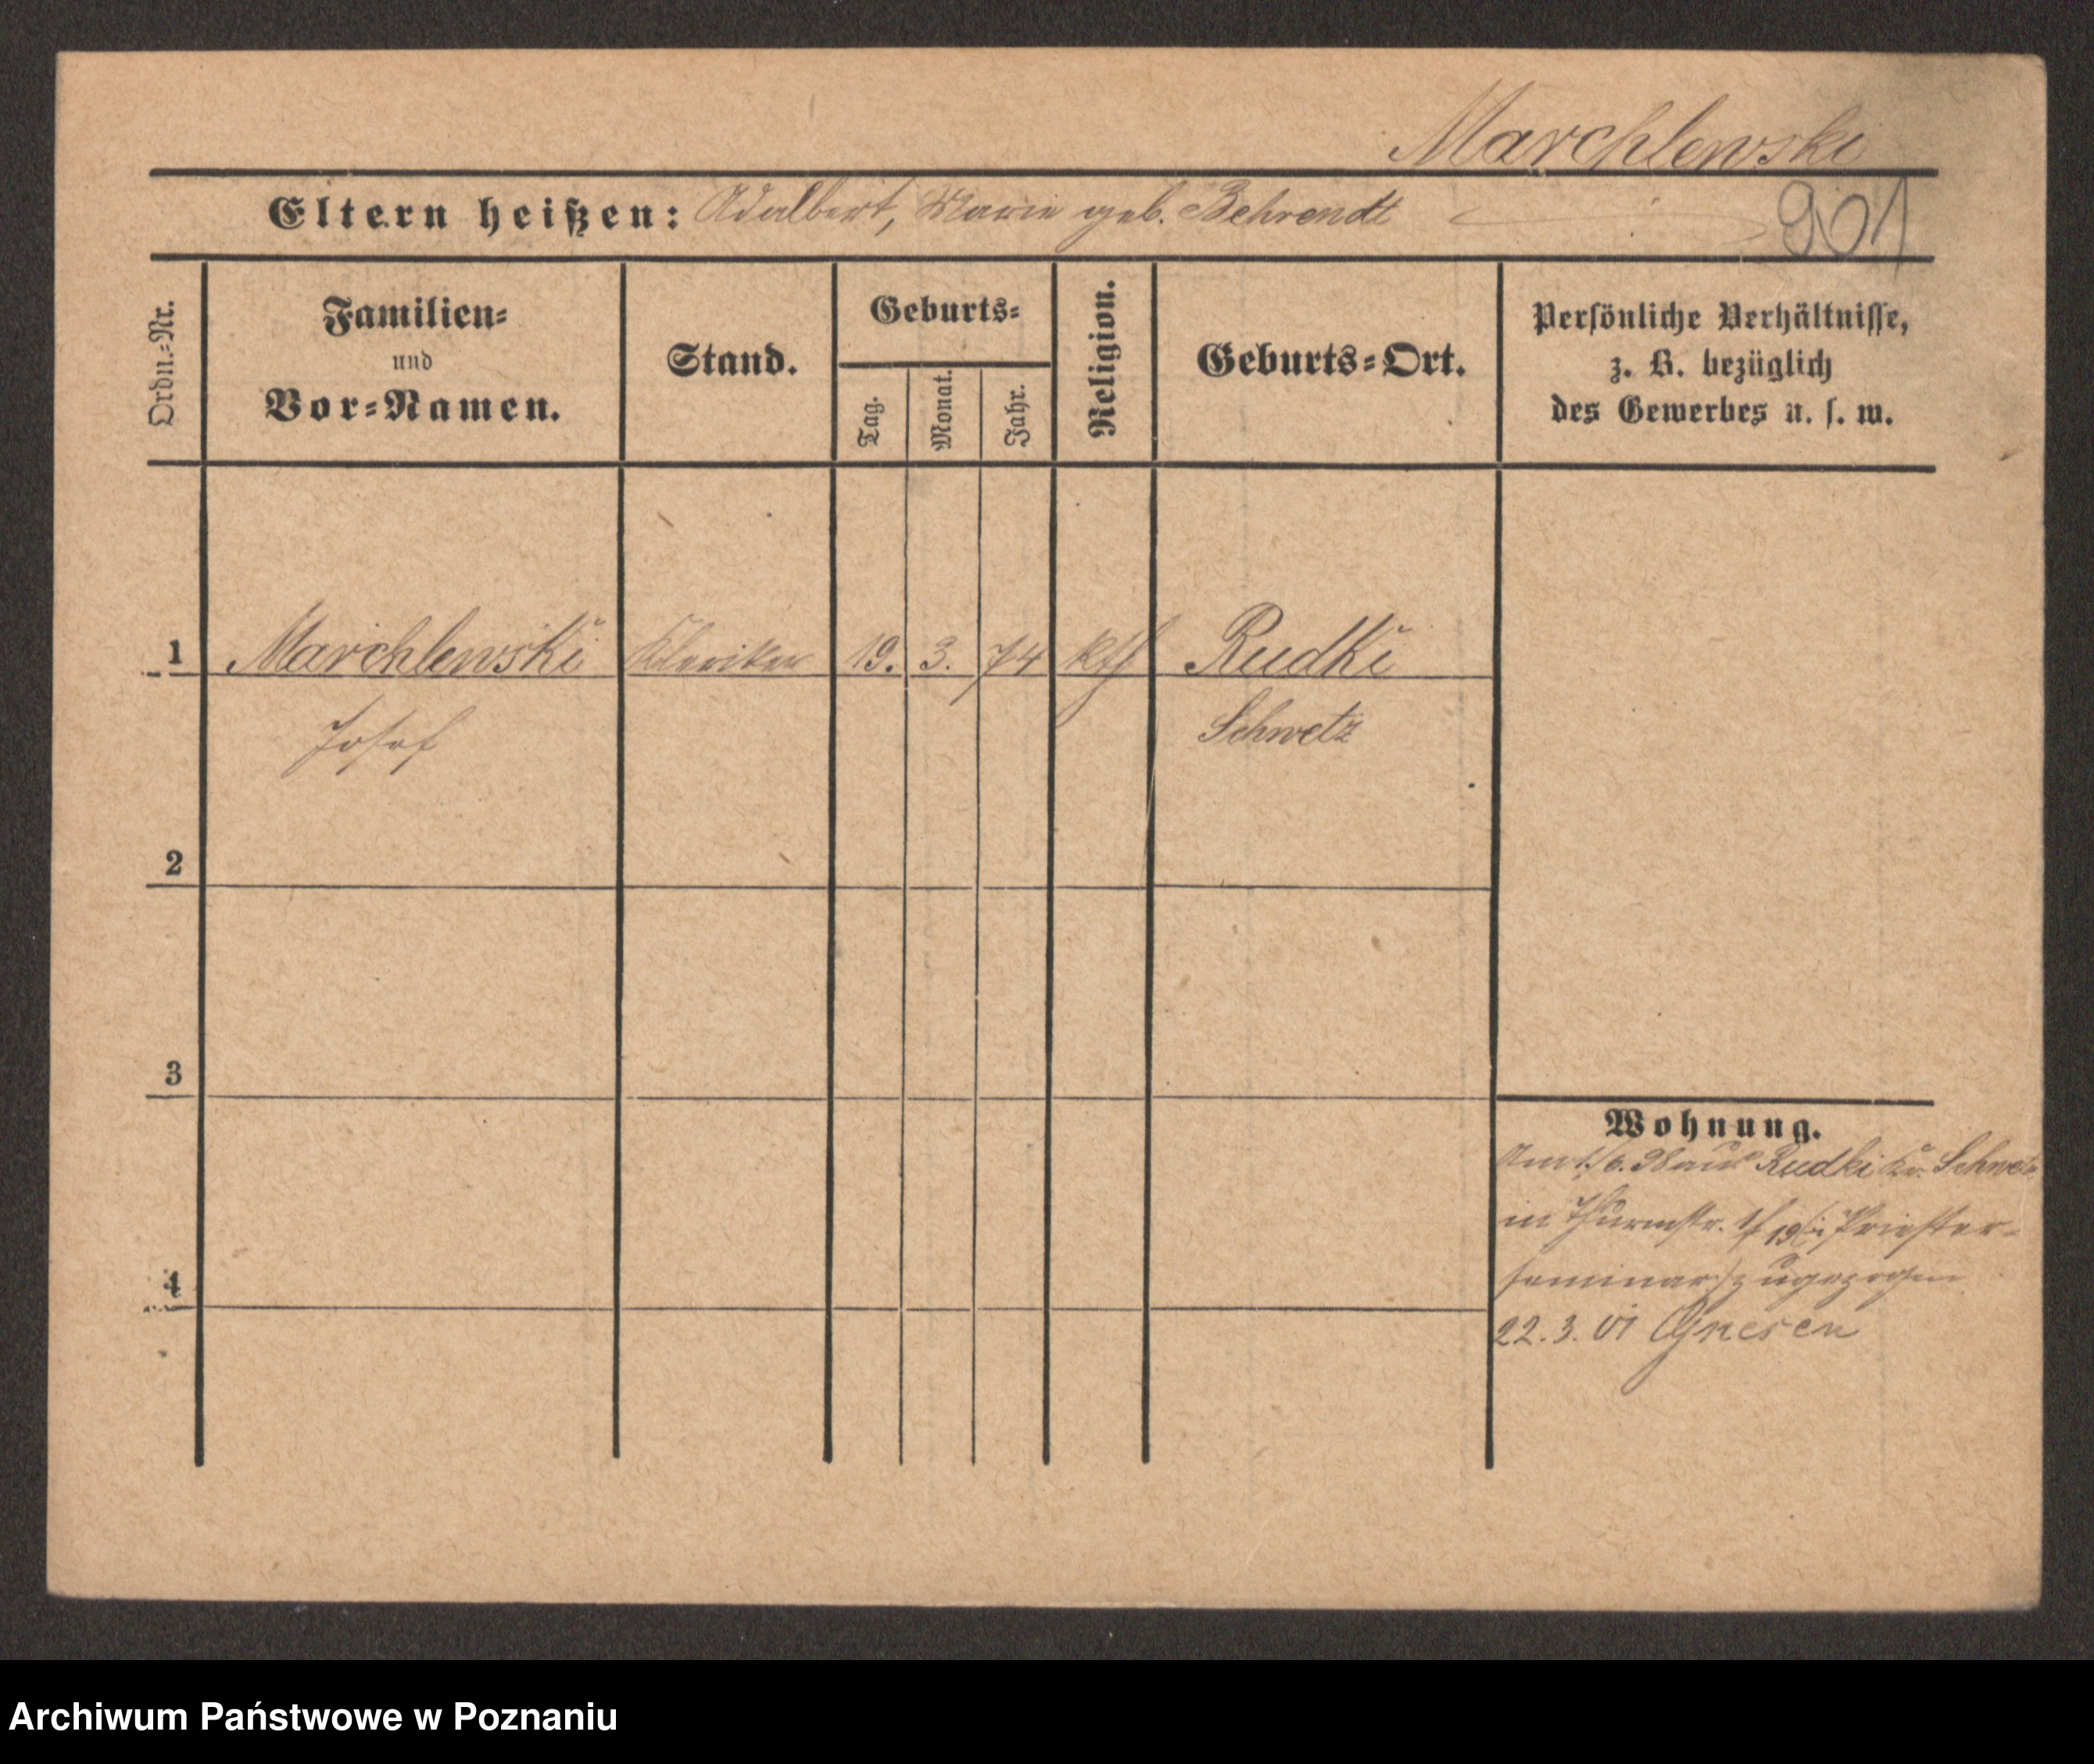 Marchlewski
Eltern heißen: Adalbert, Marie geb. Behrendt
901
Ordn.-Nr.
Familien-
und
Vor-Namen.
Stand.
Geburts-
Tag.
Monat.
Jahr.
Religion.
Geburts-Ort.
Persönliche Verhältnisse,
z. B. bezüglich
des Gewerbes u. s. w.
1 Marchlewski Kleriker 19. 3. 74 kth Rudki
Josef Schwetz
2
3
4
Wohnung.
Am 1/6. 98 aus Rudki Kr. Schwetz
in Thurmstr. Priester-
seminar) zugezogen
22. 3. 01 Gnesen
Archiwum Państwowe w Poznaniu